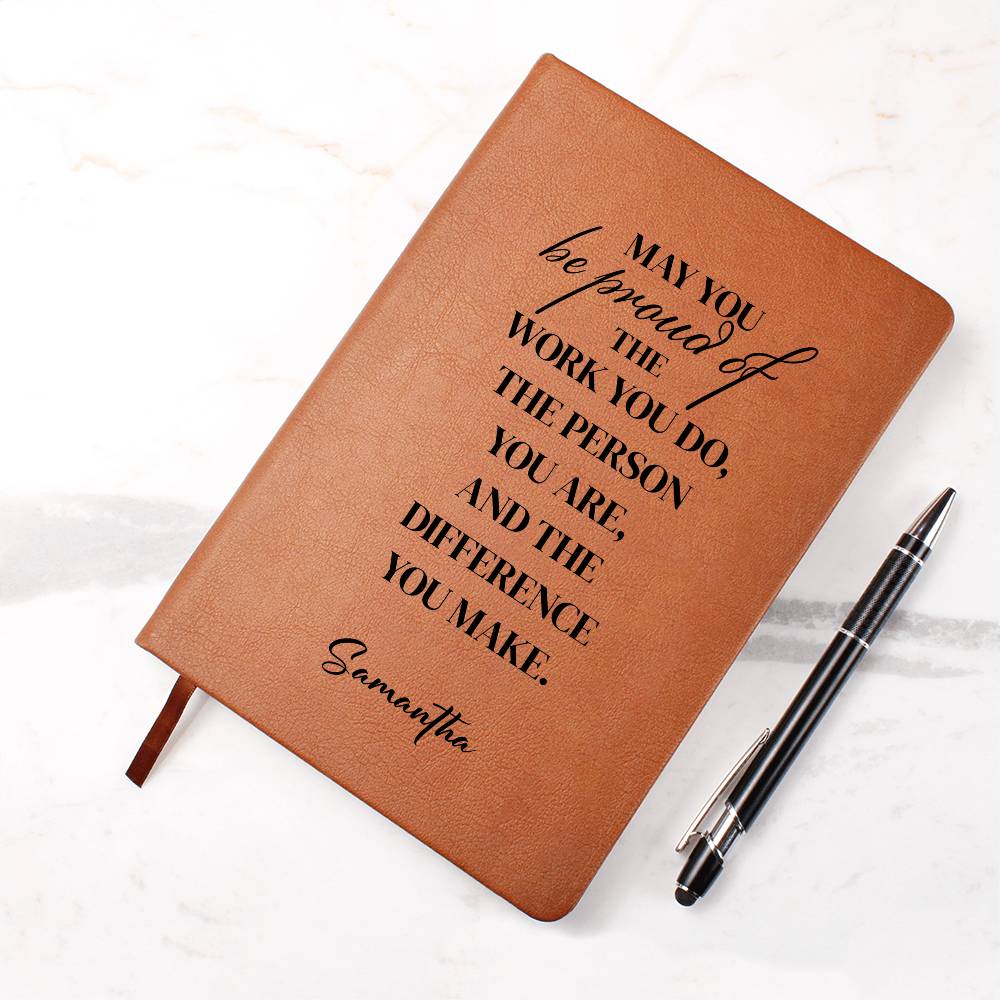 MAY YOU
be proud of
THE
WORK YOU DO,
THE PERSON
YOU ARE,
AND THE
DIFFERENCE
YOU MAKE.
Samantha